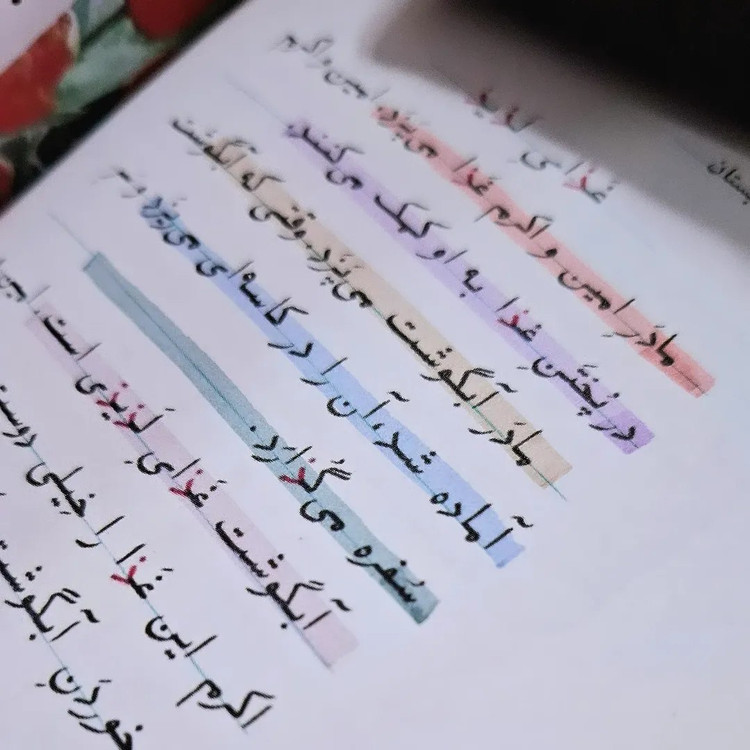 غذای لذیذ
مادَرِ امین و اکرم غذا می‌پَزَد. امین و اکرم
در پُختَنِ غذا به او کمک می‌کنند.
مادَر آبگوشت می‌پَزَد. وقتی که آبگوشت
آماده شد، آن را در کاسه‌ای می‌ریزَد و
سُفره می‌گُذارَد.
آبگوشت غَذایِ لَذیذی است. امین
اکرم این غَذا را خِیلی دوست
خوردَنِ آبگوشت